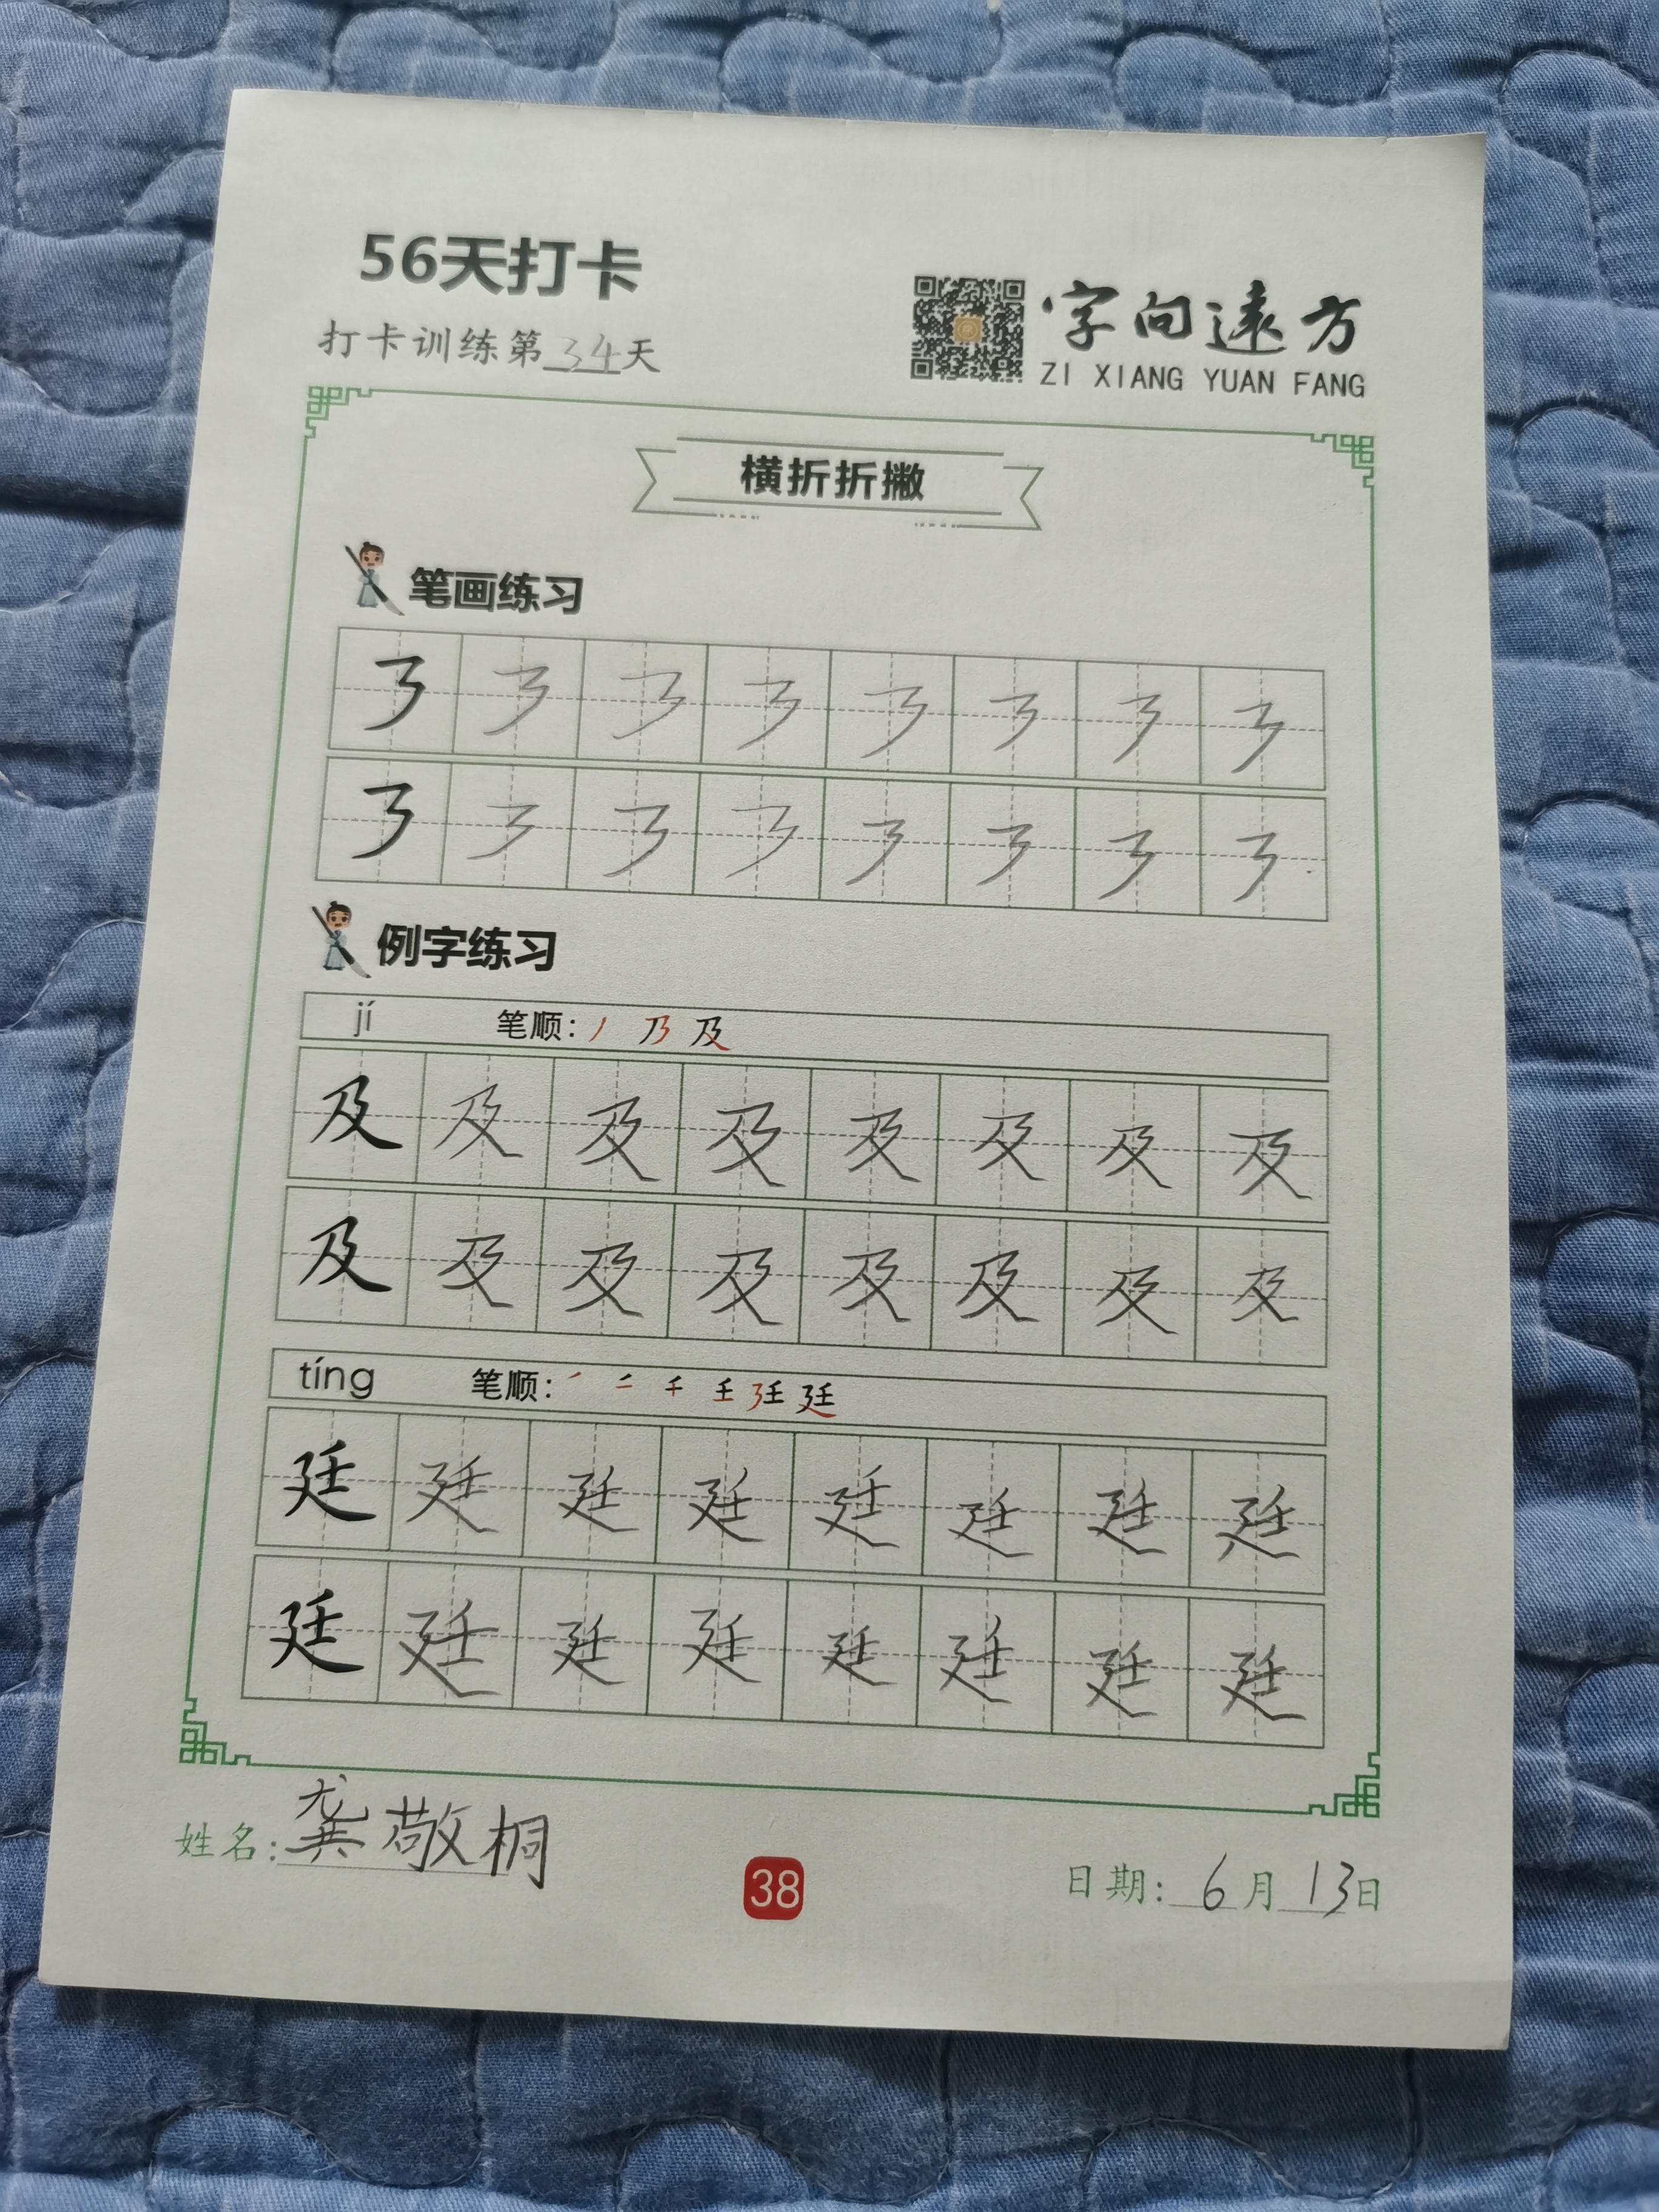 56天打卡
打卡训练第34天
字向遠方
ZI XIANG YUAN FANG
横折折撇
笔画练习
㇋ ㇋ ㇋ ㇋ ㇋ ㇋ ㇋ ㇋
㇋ ㇋ ㇋ ㇋ ㇋ ㇋ ㇋ ㇋
例字练习
jí 笔顺: 丿 乃 及
及 及 及 及 及 及 及 及
及 及 及 及 及 及 及 及
tíng 笔顺: 廷
廷 廷 廷 廷 廷 廷 廷 廷
廷 廷 廷 廷 廷 廷 廷 廷
姓名: 龚敬桐
38
日期: 6月13日